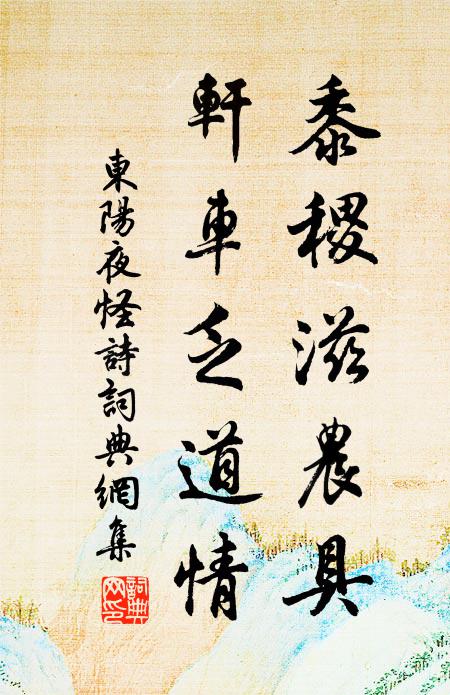 黍稷滋農具
軒車乏道情
東陽夜怪詩詞典網集
詞典
网印